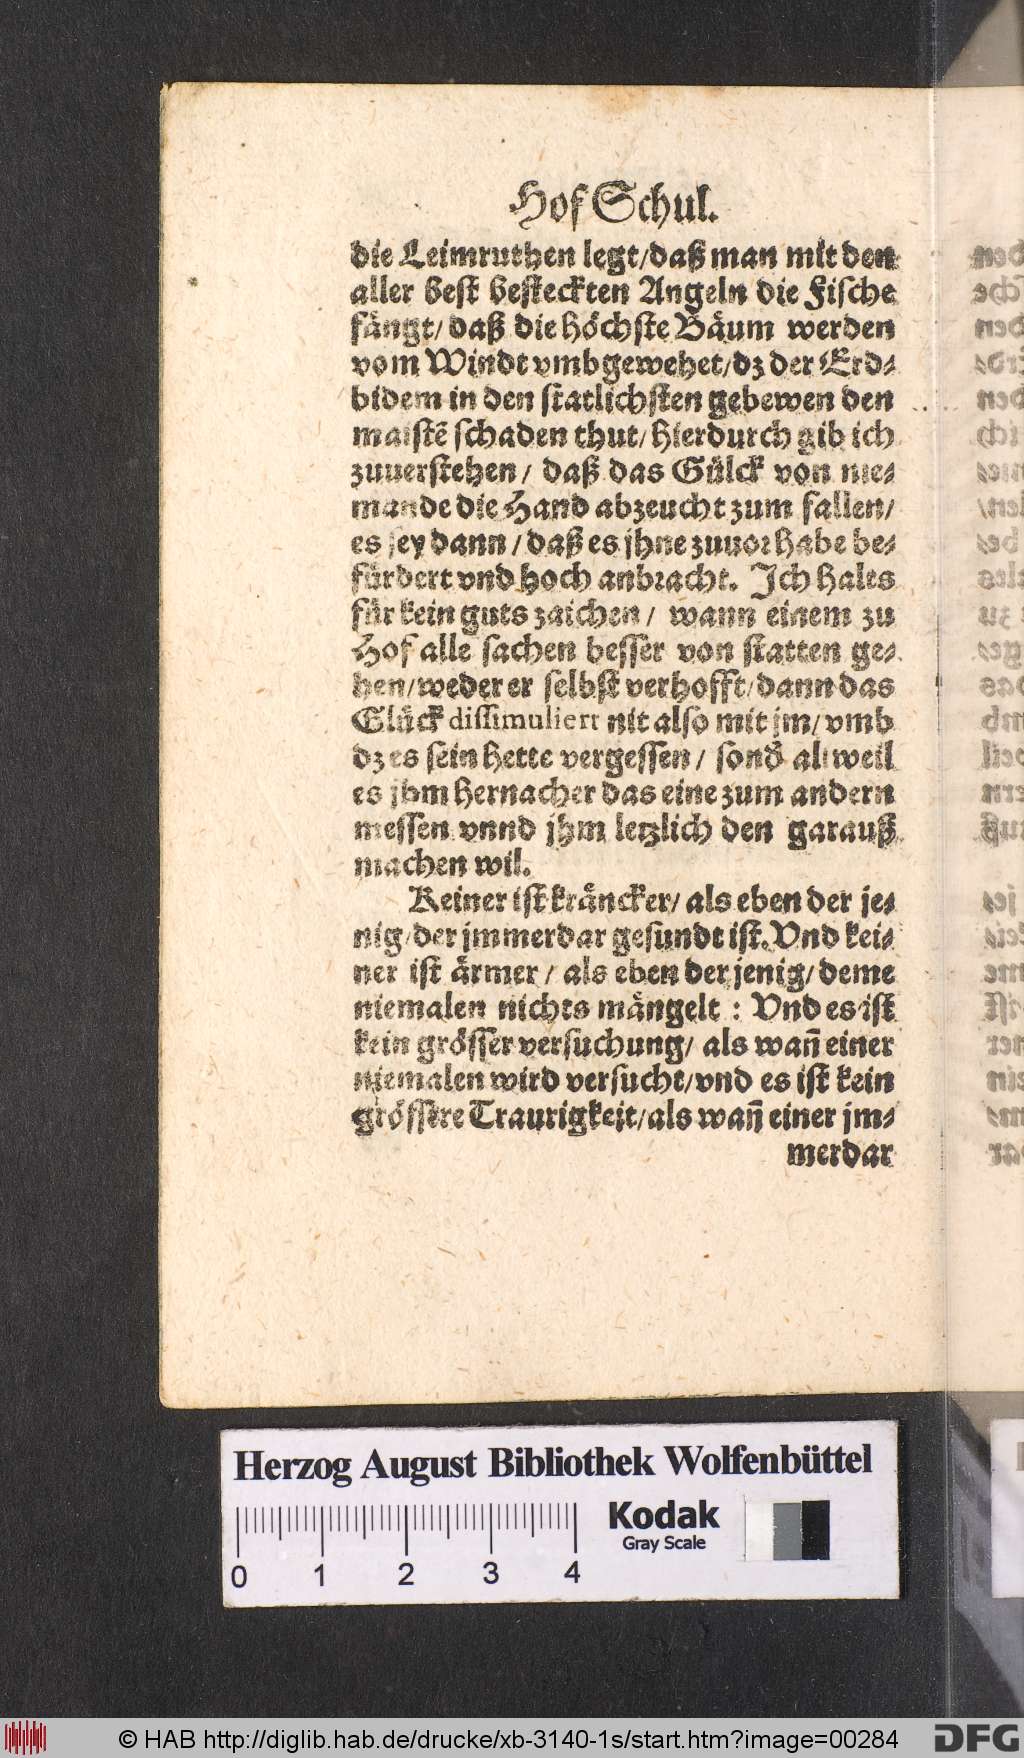 Hof Schul.
die Leimruthen legt/daß man mit den
aller best besteckten Angeln die Fische
fängt/ daß die höchste Bäum werden
vom Windt vmbgewehet/dz der Erd⸗
bidem in den statlichsten gebewen den
maistē schaden thut/ hierdurch gib ich
zuuerstehen/ daß das Gülck von nie⸗
mande die Hand abzeucht zum fallen/
es sey dann/ daß es jhne zuuor habe be⸗
fürdert vnd hoch anbracht. Ich halts
für kein guts zaichen/ wann einem zu
Hof alle sachen besser von statten ge⸗
hen/weder er selbst verhofft/dann das
Glück dissimuliert nit also mit jm/ vmb
dz es sein hette vergessen/ sonđ all weil
es jhm hernacher das eine zum andern
messen vnnd jhm letzlich den garauß
machen wil.
Keiner ist kräncker/ als eben der je⸗
nig/der jmmerdar gesundt ist. Vnd kei⸗
ner ist ärmer/ als eben der jenig/ deme
niemalen nichts mängelt : Vnd es ist
kein grösser versuchung/ als wañ einer
niemalen wird versucht/vnd es ist kein
grössere Traurigkeit/als wañ einer jm⸗
merdar
Herzog August Bibliothek Wolfenbüttel
Kodak
Gray Scale
0 1 2 3 4
© HAB http://diglib.hab.de/drucke/xb-3140-1s/start.htm?image=00284
DFG